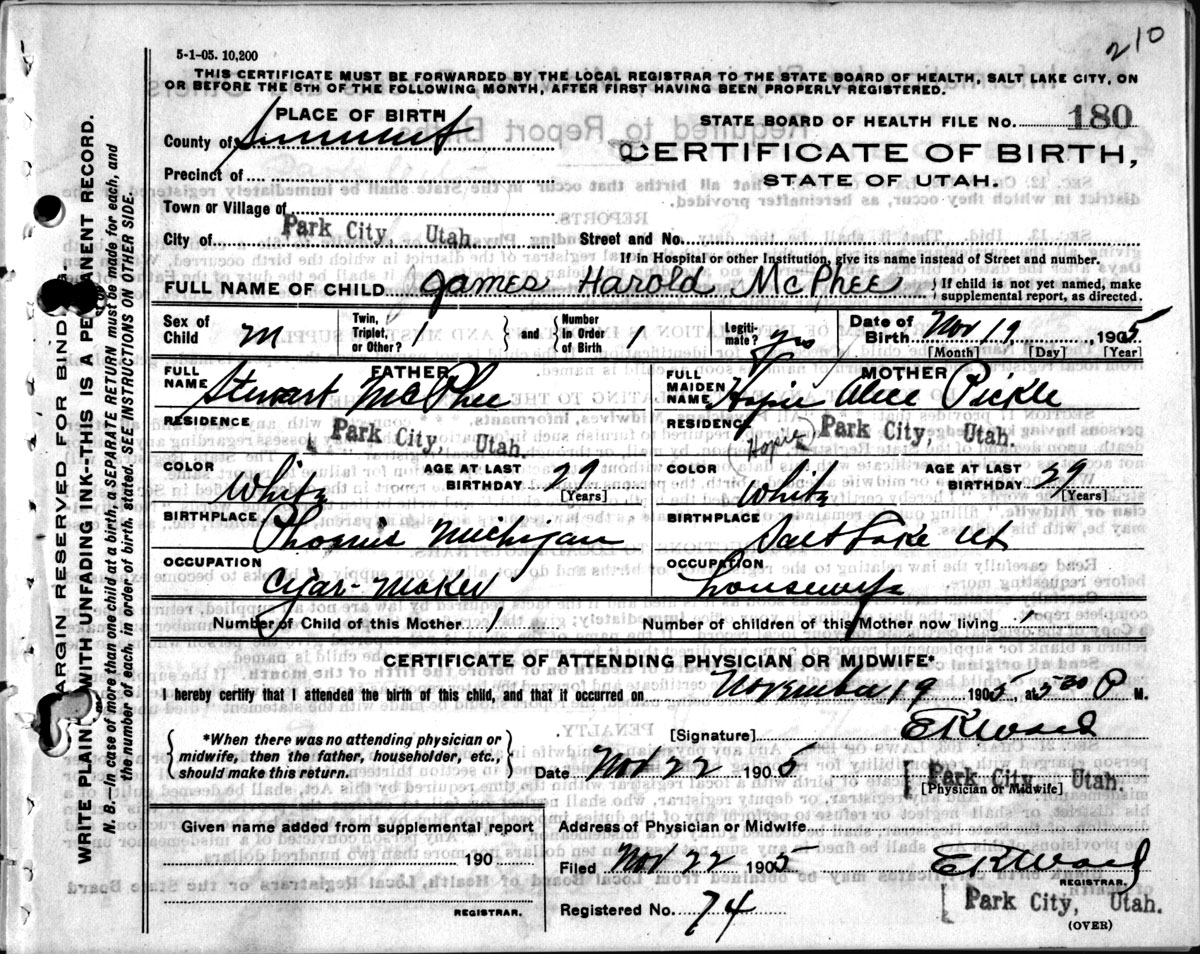 210
5-1-05. 10,200
THIS CERTIFICATE MUST BE FORWARDED BY THE LOCAL REGISTRAR TO THE STATE BOARD OF HEALTH, SALT LAKE CITY, ON
OR BEFORE THE 5TH OF THE FOLLOWING MONTH, AFTER FIRST HAVING BEEN PROPERLY REGISTERED.
PLACE OF BIRTH
County of Summit
Precinct of
Town or Village of
City of Park City, Utah.
STATE BOARD OF HEALTH FILE No. 180
CERTIFICATE OF BIRTH,
STATE OF UTAH.
Street and No.
If in Hospital or other Institution, give its name instead of Street and number.
FULL NAME OF CHILD James Harold McPhee { If child is not yet named, make
supplemental report, as directed.
Sex of
Child M
Twin,
Triplet,
or Other? 1
and
Number
in Order
of Birth 1
Legiti-
mate? yes
Date of
Birth Nov 19, 1905
[Month] [Day] [Year]
FATHER
FULL
NAME Stewart McPhee
RESIDENCE
Park City, Utah.
COLOR White
AGE AT LAST
BIRTHDAY 27
[Years]
BIRTHPLACE
Phoenix Michigan
OCCUPATION
Cigar-Maker
MOTHER
FULL
MAIDEN
NAME Hopie Alice Pickle
RESIDENCE (Hopie) Park City, Utah.
COLOR White
AGE AT LAST
BIRTHDAY 29
[Years]
BIRTHPLACE
Salt Lake Ut
OCCUPATION
Housewife
Number of Child of this Mother 1
Number of children of this Mother now living 1
CERTIFICATE OF ATTENDING PHYSICIAN OR MIDWIFE*
I hereby certify that I attended the birth of this child, and that it occurred on November 19 1905, at 5 30 P M.
{ *When there was no attending physician or
midwife, then the father, householder, etc.,
should make this return. }
[Signature] E K Ward
Date Nov 22 1905
Park City, Utah.
[Physician or Midwife]
Given name added from supplemental report
190
REGISTRAR.
Address of Physician or Midwife
Filed Nov 22 1905 E K Ward
REGISTRAR.
Registered No. 74
Park City, Utah.
(OVER)
MARGIN RESERVED FOR BINDING
WRITE PLAINLY WITH UNFADING INK--THIS IS A PERMANENT RECORD.
N. B.—In case of more than one child at a birth, a SEPARATE RETURN must be made for each, and
the number of each, in order of birth, stated. SEE INSTRUCTIONS ON OTHER SIDE.